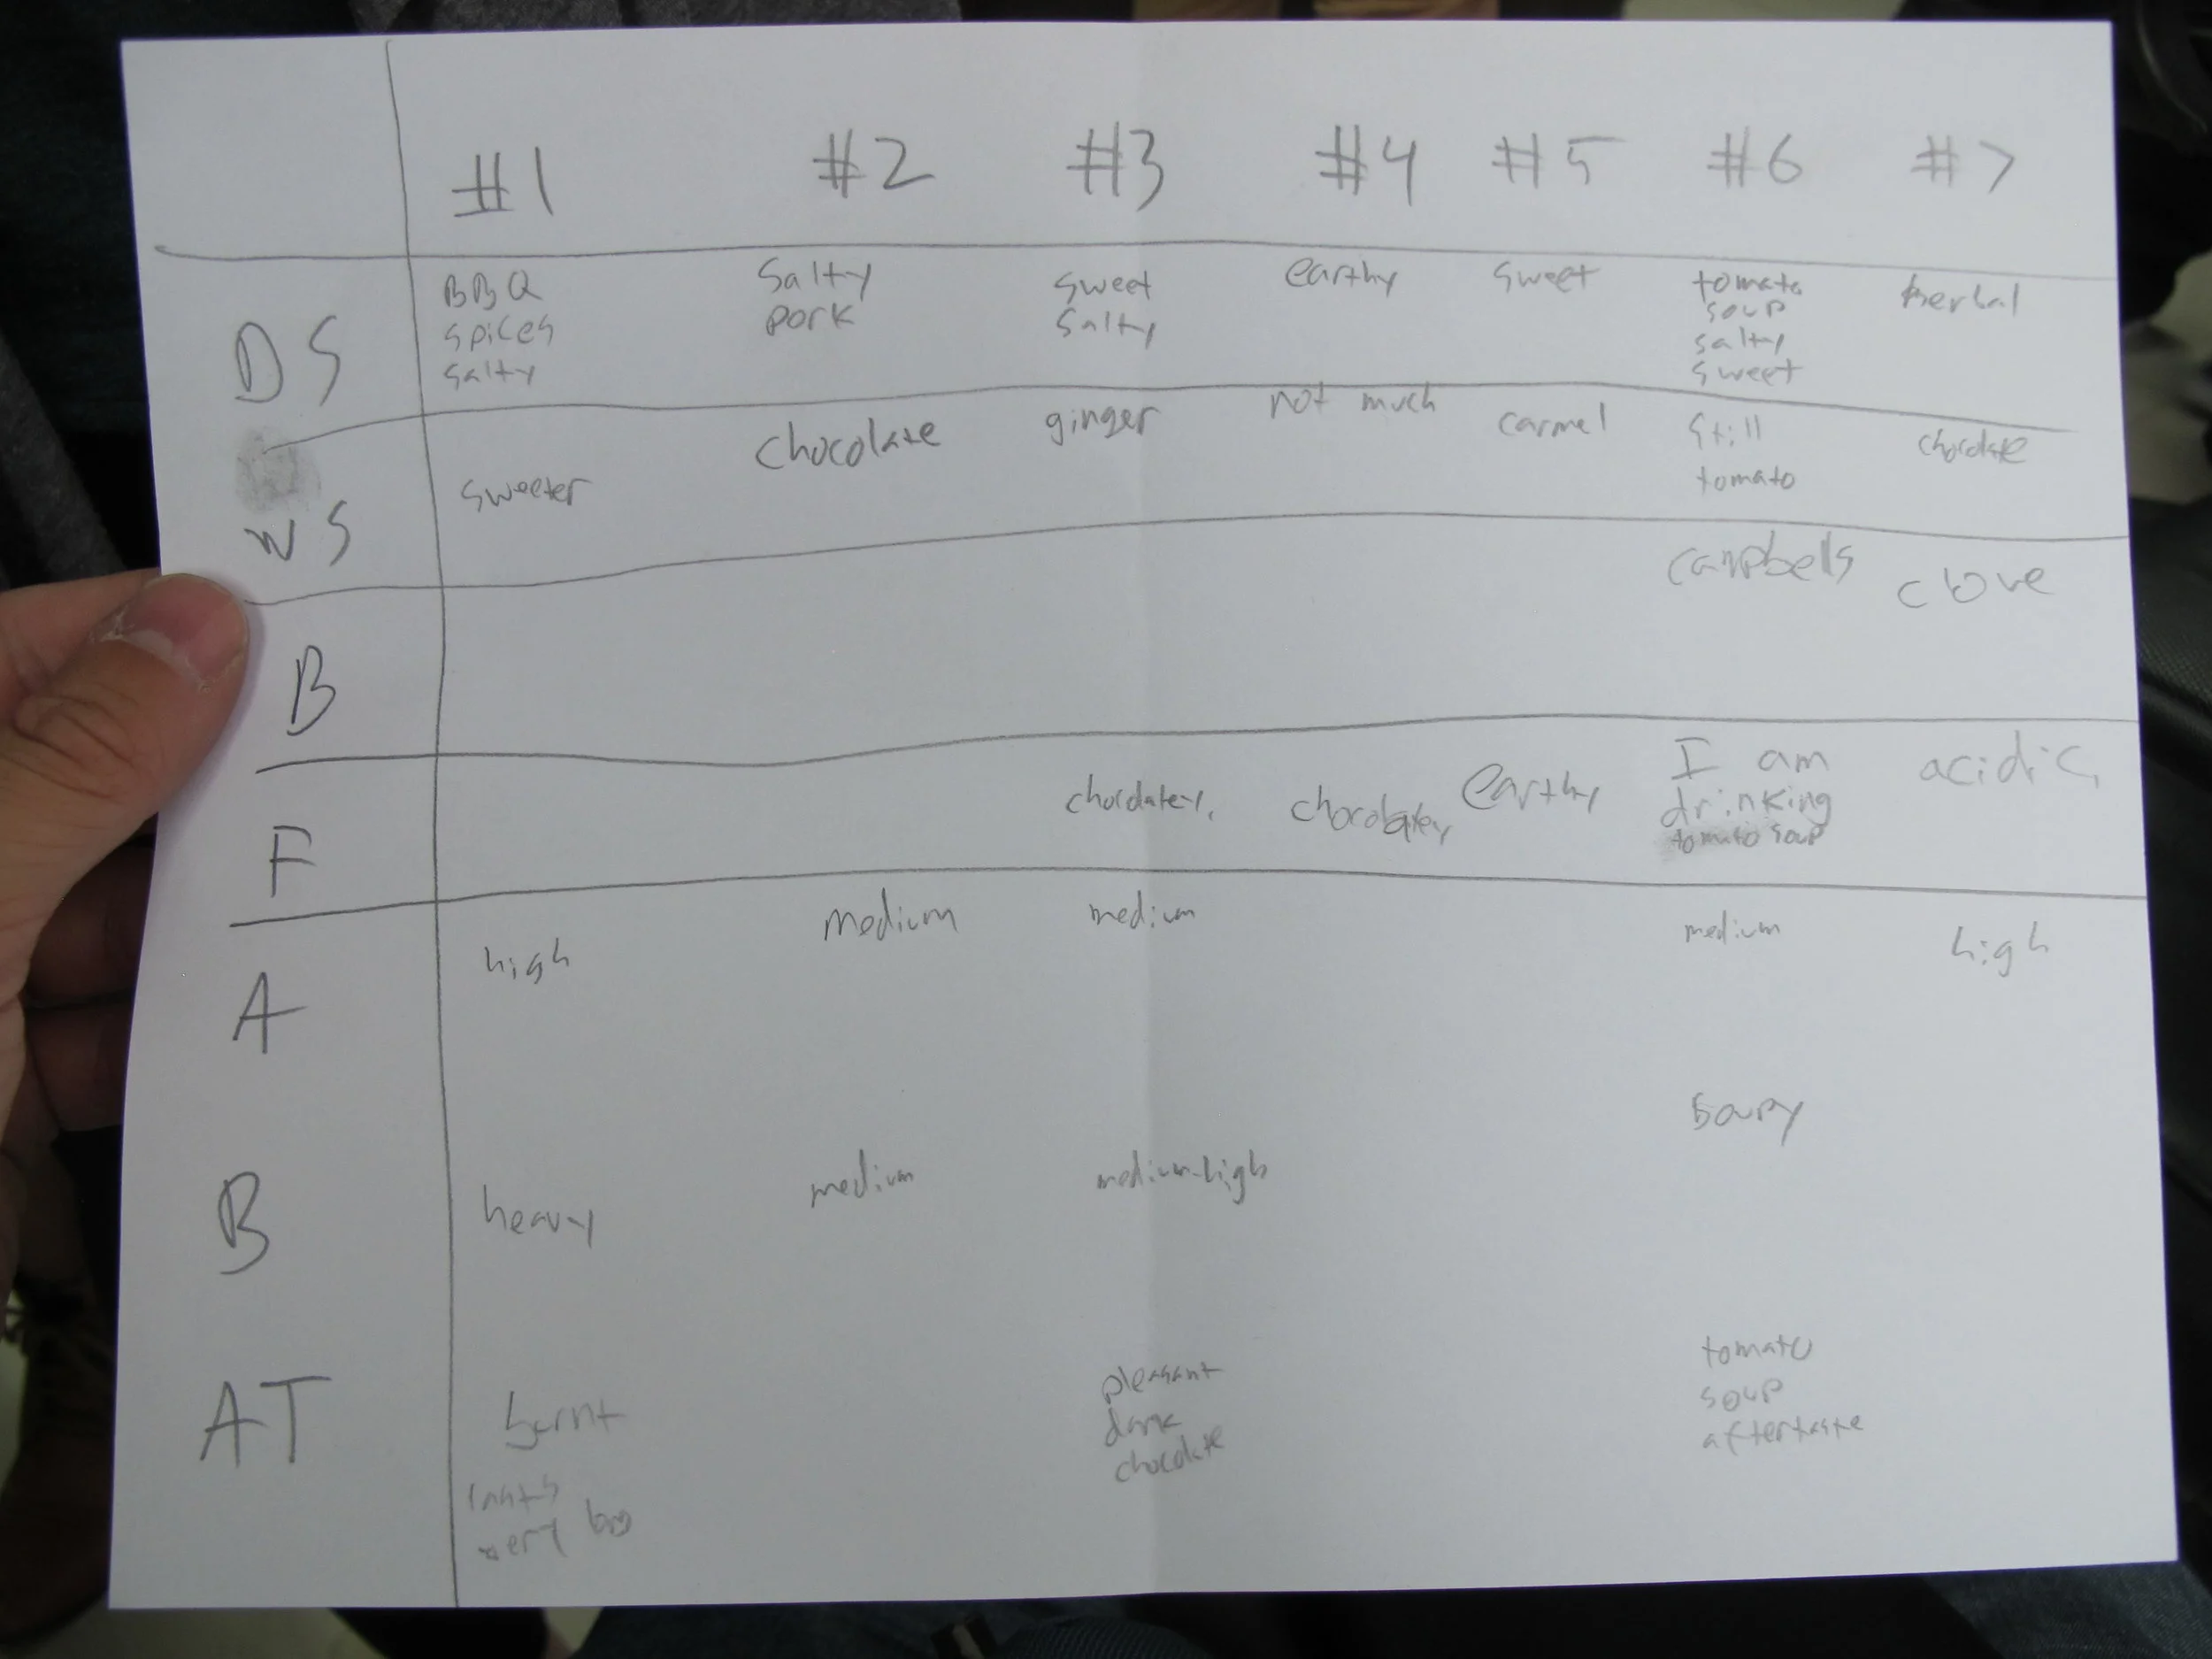 #1 #2 #3 #4 #5 #6 #7
DS
BBQ
spices
salty
Salty
pork
sweet
salty
earthy
sweet
tomato
soup
salty
sweet
herbal
WS
sweeter
chocolate
ginger
not much
carmel
still
tomato
chocolate
B
campbells
clove
F
chocolatey,
chocolatey,
earthy
I am
drinking
tomato soup
acidic,
A
high
medium
medium
medium
high
B
heavy
medium
medium-high
soupy
AT
burnt
very
pleasant
dark
chocolate
tomato
soup
aftertaste